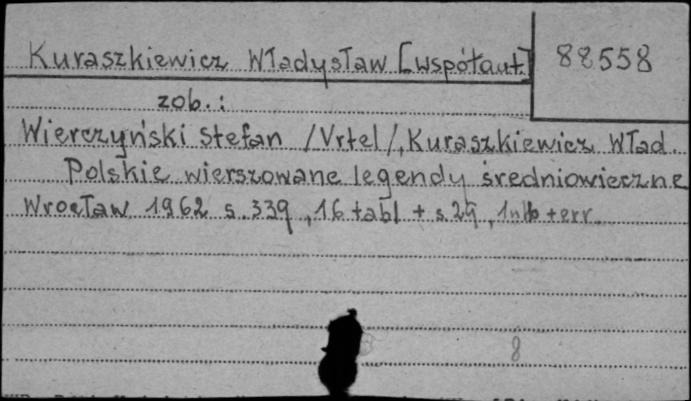 Kuraszkiewicz Władysław [współaut.]
88558
zob.:
Wierczyński Stefan /Vrtel/, Kuraszkiewicz Wład.
Polskie wierszowane legendy średniowieczne
Wrocław 1962 s. 339, 16 tabl + s. 29, 1 nlb + err.
8